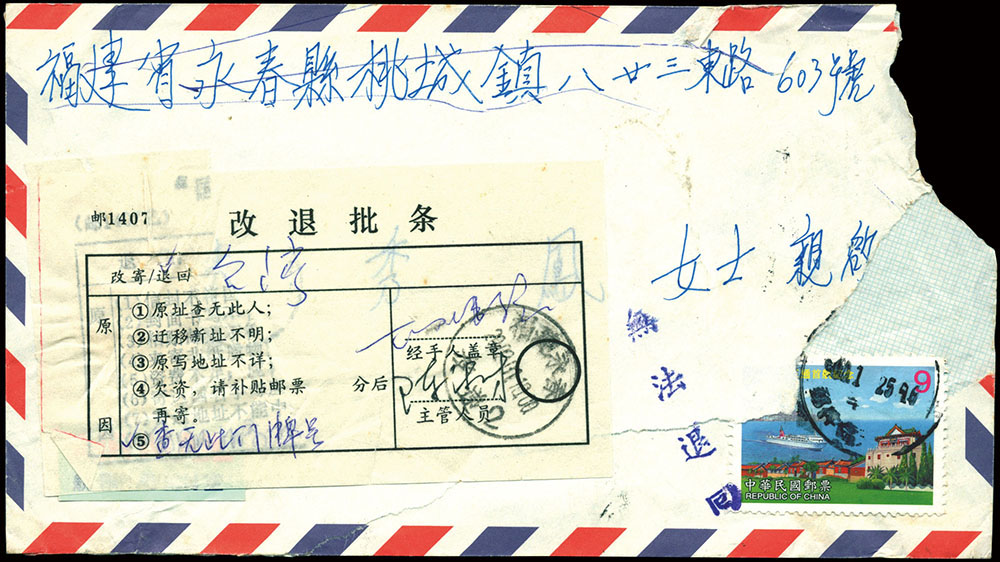 福建省永春縣桃城鎮八廿三東路603號
邮1407
改退批条
改寄/退回 台湾
李 鳳
女士 親啟
原因
①原址查无此人;
②迁移新址不明;
③原写地址不详;
④欠资，请补贴邮票
再寄。
⑤查无此门牌号
分后
经手人盖章
主管人员
無法退回
9
25
中華民國郵票
REPUBLIC OF CHINA